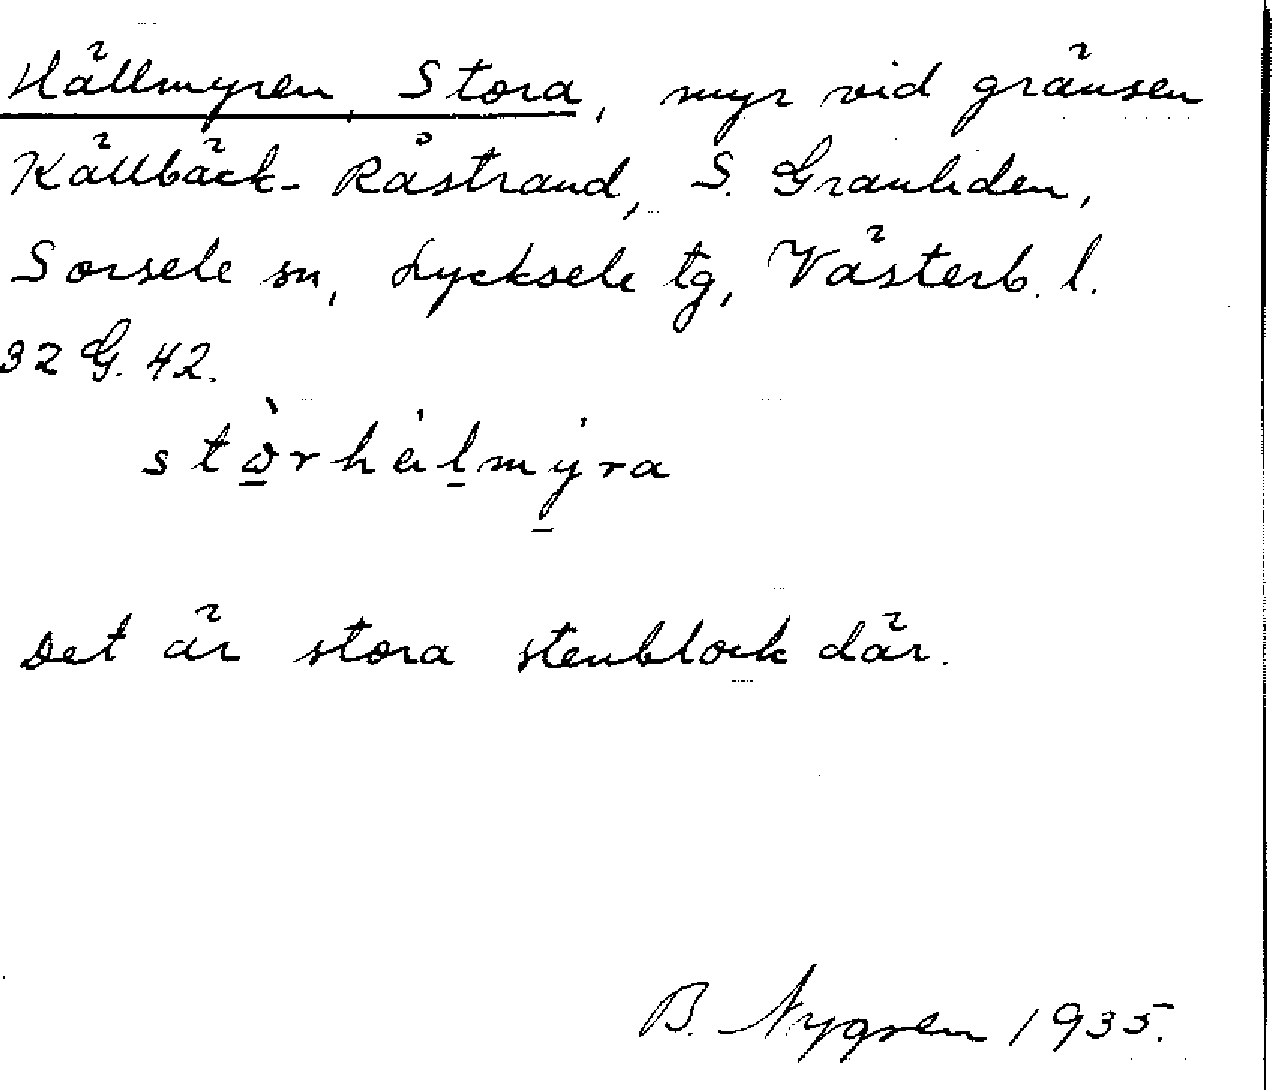 Hällmyren, Stora, myr vid gränsen
Källbäck- Råstrand, S. Granliden,
Sorsele sn, Lycksele tg, Västerb. l.
32 G. 42.
stòrhälmýra
Det är stora stenblock där.
B. Nygren 1935.